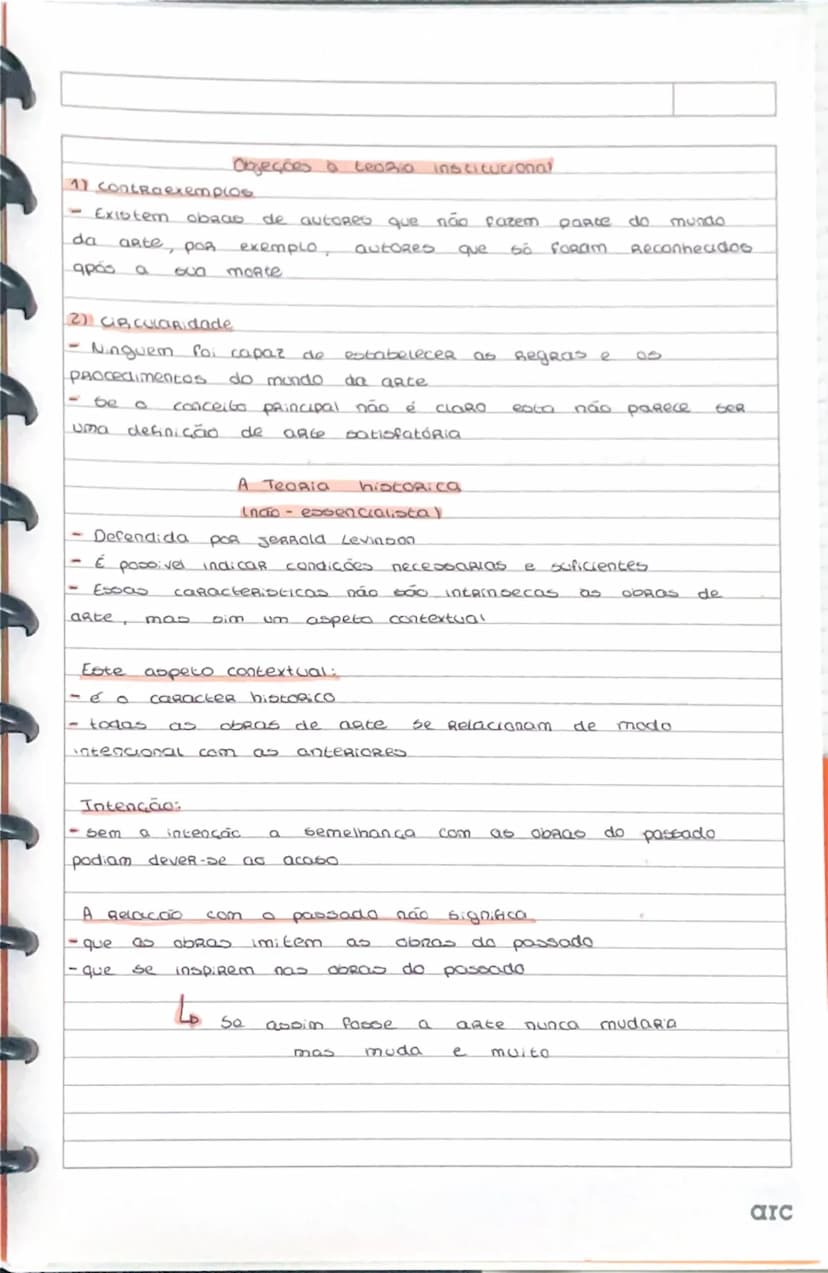 Objeções à teoria institucional
1) contraexemplos
- Existem obras de autores que não fazem parte do mundo
da arte, por exemplo, autores que só foram reconhecidos
após a sua morte
2) circularidade
- Ninguem foi capaz de estabelecer as regras e os
procedimentos do mundo da arte
- Se o conceito principal não é claro esta não parece ser
uma definição de arte satisfatória
A Teoria historica
(não-essencialista)
- Defendida por Jerrold Levinson
- É possivel indicar condições necessarias e suficientes
- Essas caracteristicas não são intrinsecas as obras de
arte, mas sim um aspeto contextual
Este aspeto contextual:
- é o caracter historico
- todas as obras de arte se relacionam de modo
intencional com as anteriores
Intenção:
- sem a intenção a semelhança com as obras do passado
podiam dever-se ao acaso
A relacção com o passado não significa
- que as obras imitem as obras do passado
- que se inspirem nas obras do passado
↳ Se assim fosse a arte nunca mudaria
mas muda e muito
arc